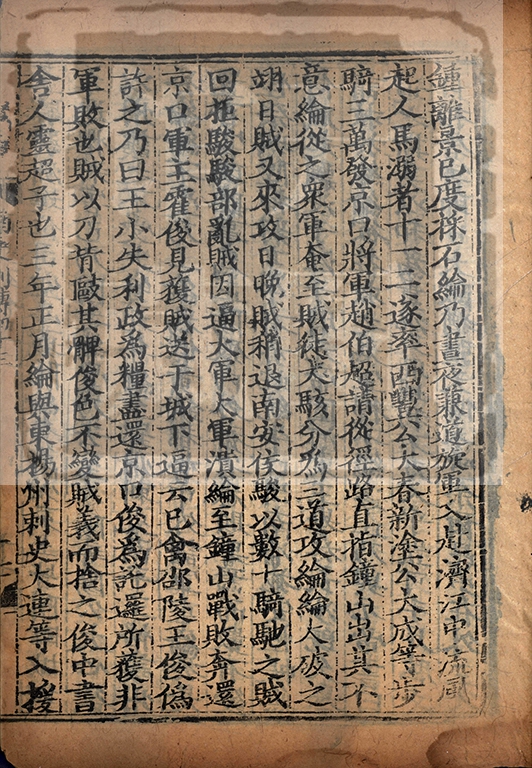 鍾離景已度採石綸乃晝夜兼道旋軍入赴濟江中流風
起人馬溺者十一二遂率西豐公大春新淦公大成等步
騎三萬發京口將軍趙伯超請從徑路直指鍾山出其不
意綸從之眾軍奄至賊徒大駭分爲三道攻綸綸大破之
翊日賊又來攻日晚賊稍退南安侯駿以數十騎馳之賊
回拒駿駿部亂賊因逼大軍大軍潰綸至鐘山戰敗奔還
京口軍主霍俊見獲賊送于城下逼云已禽邵陵王俊僞
許之乃曰王小失利政爲糧盡還京口俊爲託邏所獲非
軍敗也賊以刀背毆其髀俊色不變賊義而捨之俊中書
舍人靈超子也三年正月綸與東揚州刺史大連等入援